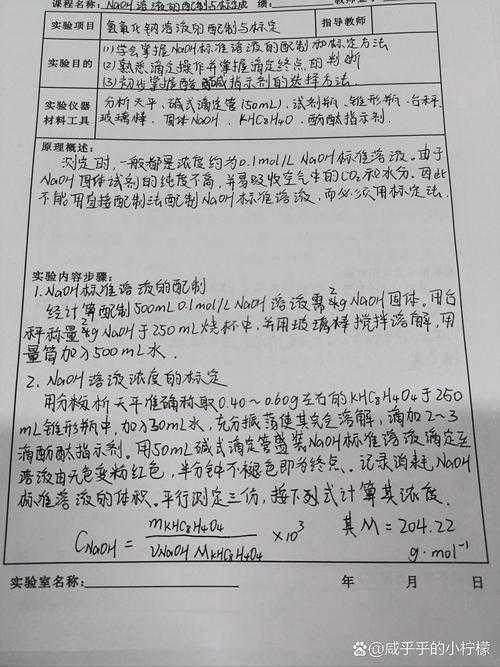 课程名称: NaOH溶液的配制与标定成 绩: 教师签名:
实验项目 氢氧化钠溶液的配制与标定 指导教师
(1)学会掌握NaOH标准溶液的配制和标定方法
实验目的 (2)熟悉滴定操作并掌握滴定终点的判断
(3)初步掌握酸碱指示剂的选择方法.
实验仪器 分析天平、碱式滴定管(50mL), 试剂瓶、锥形瓶、台秤
材料工具 玻璃棒、固体NaOH、KHC8H4O、酚酞指示剂.
原理概述:
测定时,一般都是浓度约为0.1mol/L NaOH标准溶液。由于
NaOH固体试剂的纯度不高,并易吸收空气中的CO2和水分。因此
不能用直接配制法配制NaOH标准溶液,而必须用标定法.
实验内容步骤:
1. NaOH标准溶液的配制
经计算配制500mL 0.1mol/L NaOH溶液需2g NaOH固体。用台
秤称量2g NaOH于250mL烧杯中,并用玻璃棒搅拌溶解,用
量筒加入500mL水.
2. NaOH溶液浓度的标定
用分析天平准确称取0.40~0.60g左右的KHC8H4O4于250
mL锥形瓶中,加入30mL水,充分振荡使其完全溶解,滴加2~3
滴酚酞指示剂。用50mL碱式滴定管盛装NaOH标准溶液滴定至
溶液由无色变粉红色,半分钟不褪色即为终点、记录消耗NaOH
标准溶液的体积。平行测定三份,按下列式计算其浓度.
CNaOH = mKHC8H4O4 / VNaOH MKHC8H4O4 ×10³ 其M=204.22
g·mol⁻¹
实验室名称: 年 月 日
@咸乎乎的小柠檬